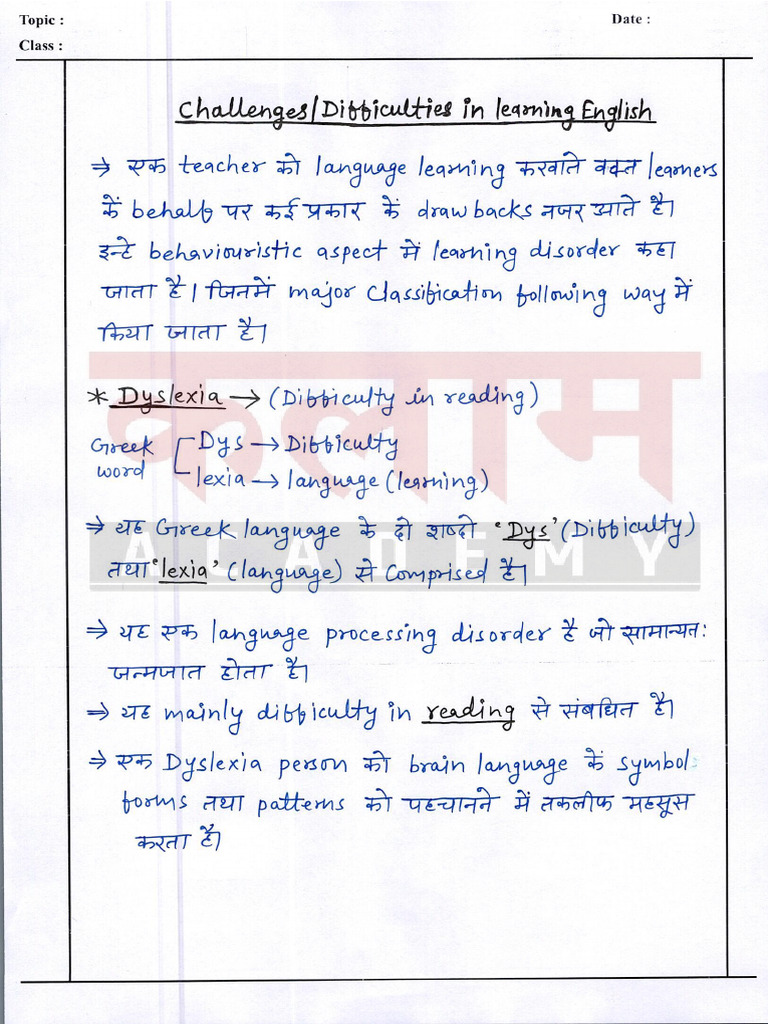 Topic :
Date :
Class :
Challenges/Difficulties in learning English
⇒ एक teacher को language learning करवाते वक्त learners
कें behalf पर कई प्रकार कें drawbacks नजर आते है।
इन्टे behaviouristic aspect में learning disorder कहा
जाता है। जिनमें major classification following way में
किया जाता है।
* Dyslexia → (Difficulty in reading)
Greek word
Dys → Difficulty
lexia → language (learning)
⇒ यह Greek language के दो शब्दो 'Dys' (Difficulty)
तथा 'lexia' (language) से comprised है।
⇒ यह एक language processing disorder है जो सामान्यत:
जन्मजात होता है।
⇒ यह mainly difficulty in reading से संबधित है।
⇒ एक Dyslexia person को brain language कें symbol
forms तथा patterns को पहचानने में तकलीफ महसूस
करता है।
कलाम
ACADEMY